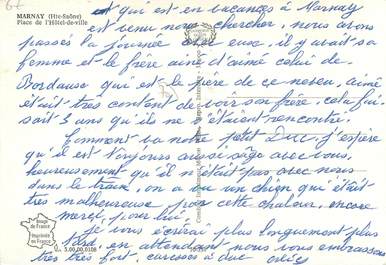 67
MARNAY (Hte-Saône)
Place de l'Hôtel-de-ville
est qui est en vacances à Marnay
est venu nous chercher, nous avons
passés la journée chez eux, il y avait sa
femme et le frère ainé aimé celui de
Bordeaux qui est le père de ce neveu, aimé
était très contant de voir son frère, cela fai-
sait 3 ans qu'ils ne s'étaient rencontré.
Comment va notre petit Duc, j'espère
qu'il est toujours aussi sage avec vous,
heureusement qu'il n'était pas avec nous
dans le train, on a vu un chien qui était
très malheureuse par cette chaleur, encore
merci pour lui.
je vous écrirai plus longuement plus
tard, en attendant nous vous embrassons
très très fort, caresses à duc
Image
de France
Imprimée
en France
3.00.00.0108